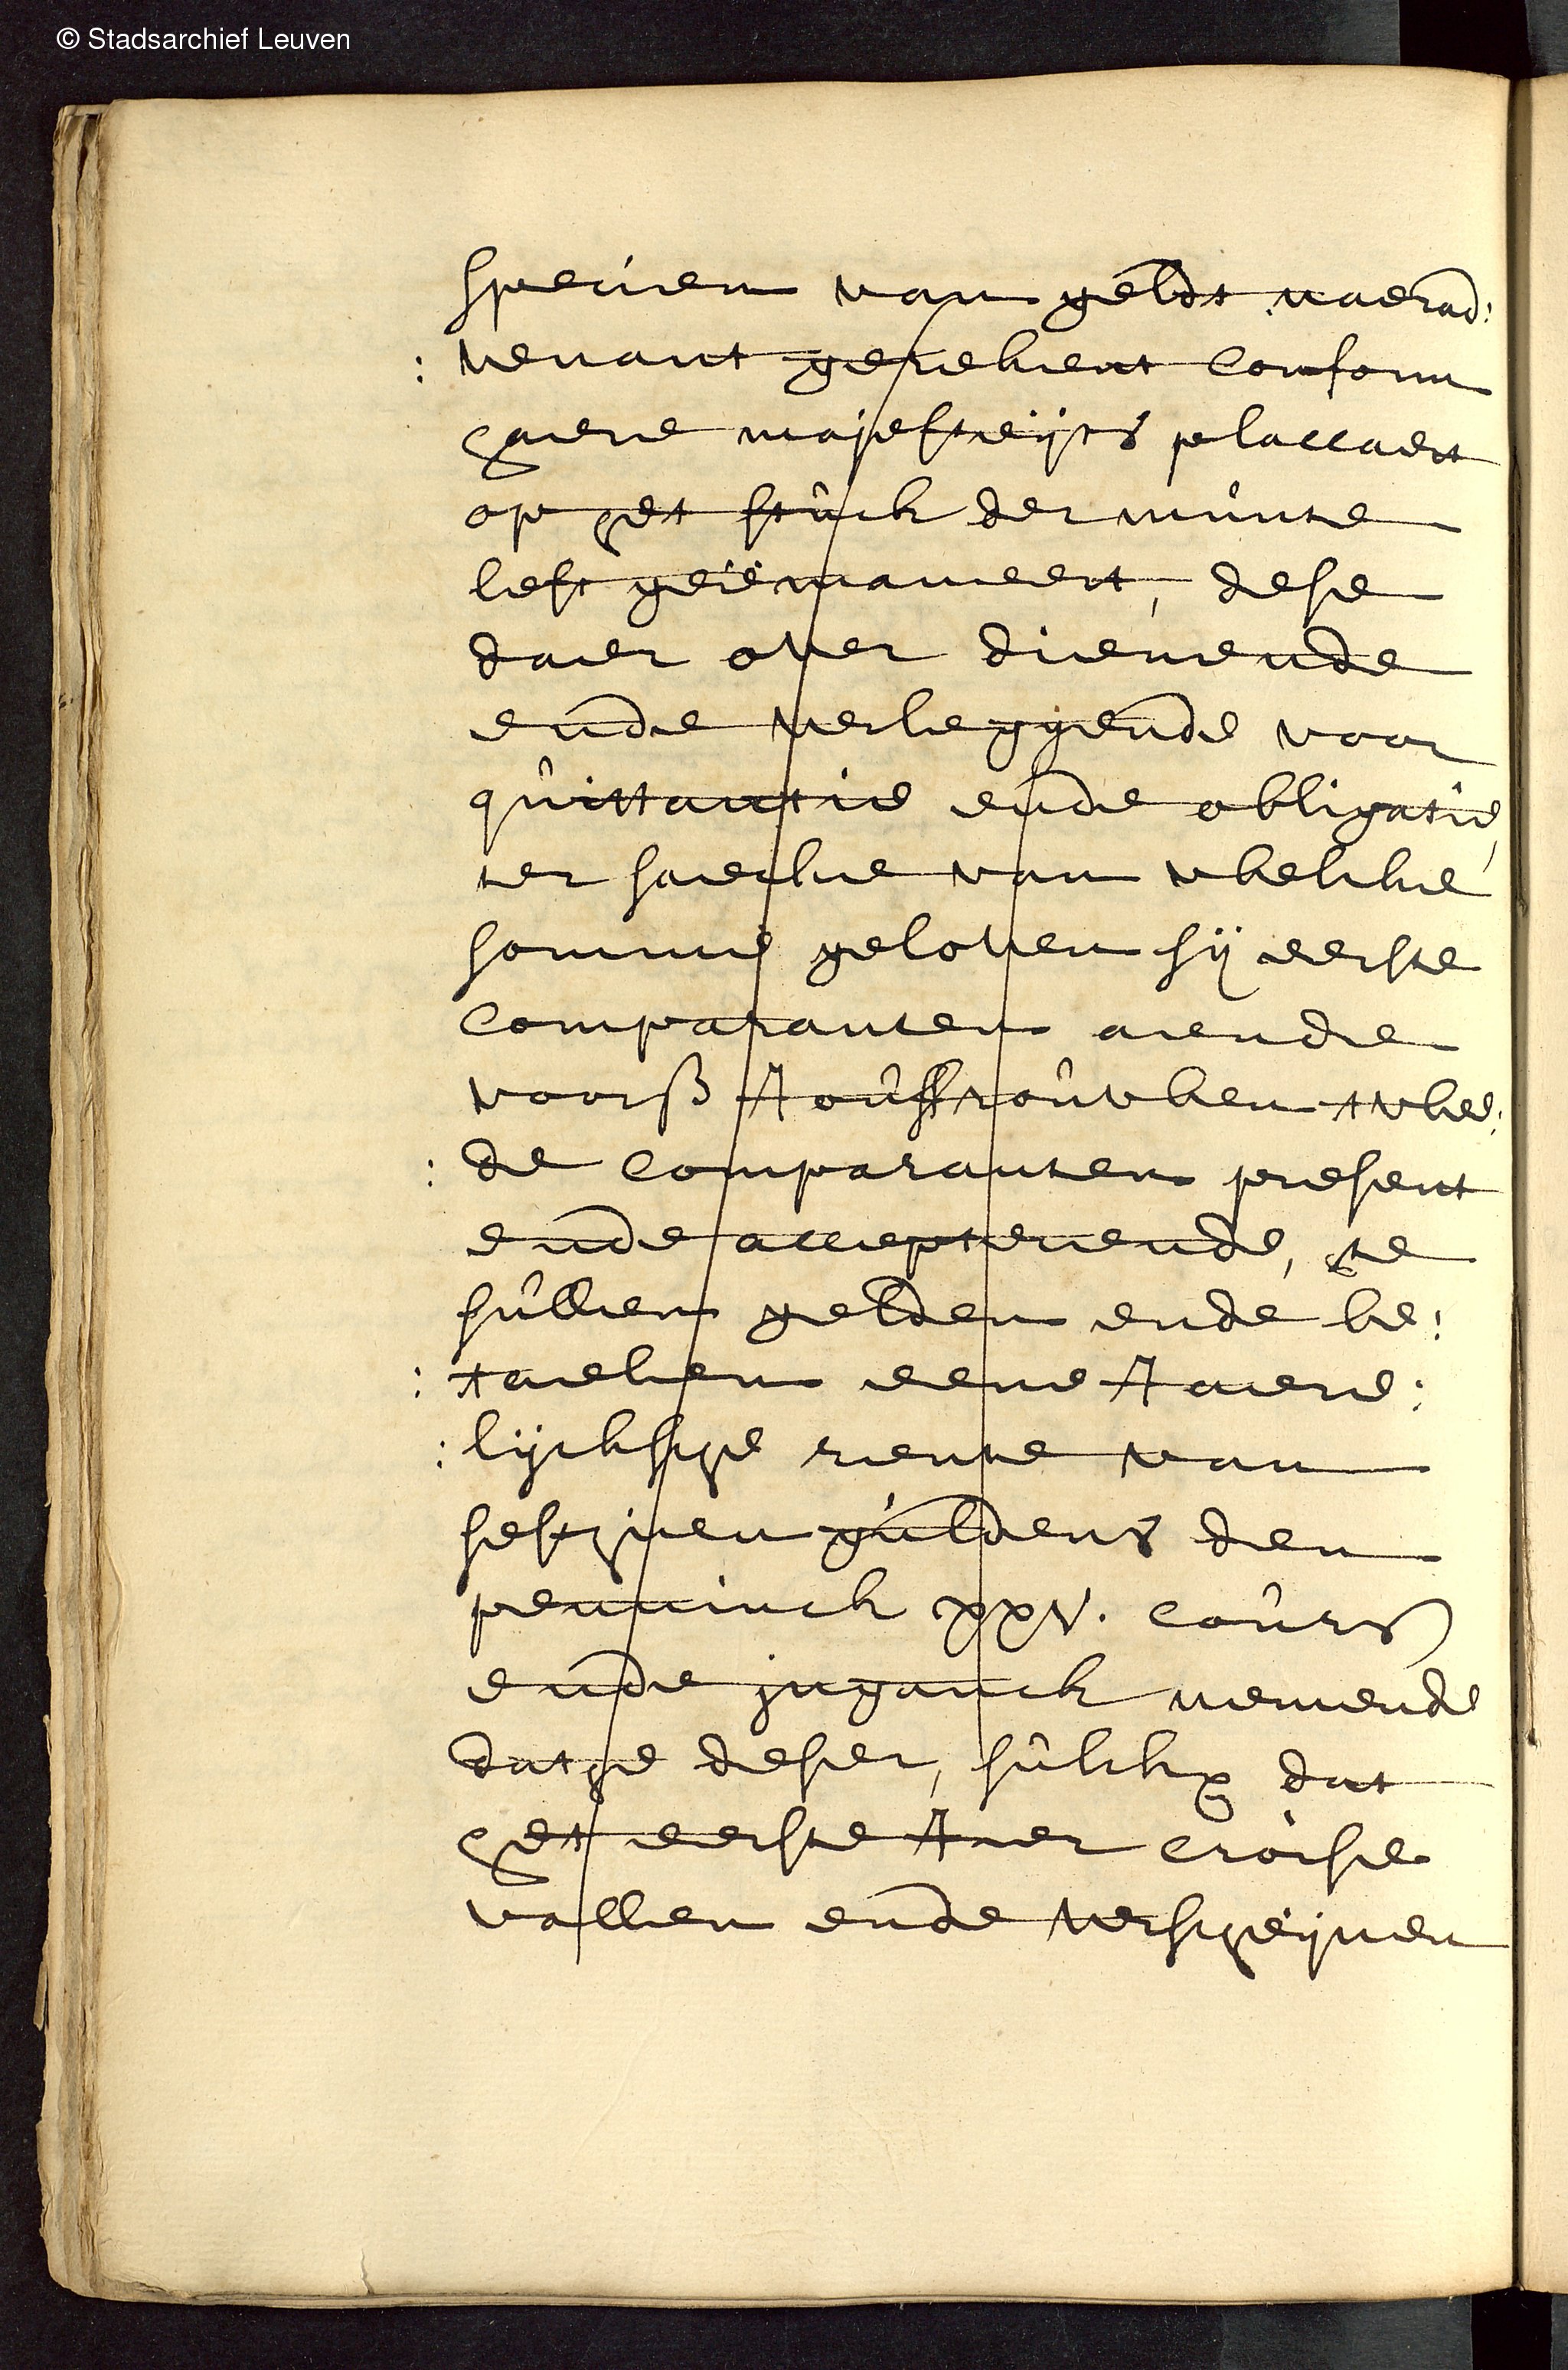 © Stadsarchief Leuven
specien van geldt naerad:
: venant gerekent conform
haere majesteijts placcaert
op het stuck der munte
lest geëmaneert, dese
daer over dienende
ende verleggende voor
quittantie ende obligatie,
ter saecke van wekcke
somme geloven sij eerste
comparanten aende
voors Jouffrouwen twee:
: de comparanten present
ende accepterende, te
sullen gelden ende be:
: taelen eene Jaere:
: lijcksche rente van
sesthien guldens den
penninck xxv. cours
ende inganck nemende
dathe deser, sulckx dat
het eerste Jaer croise
vallen ende verscheijnen